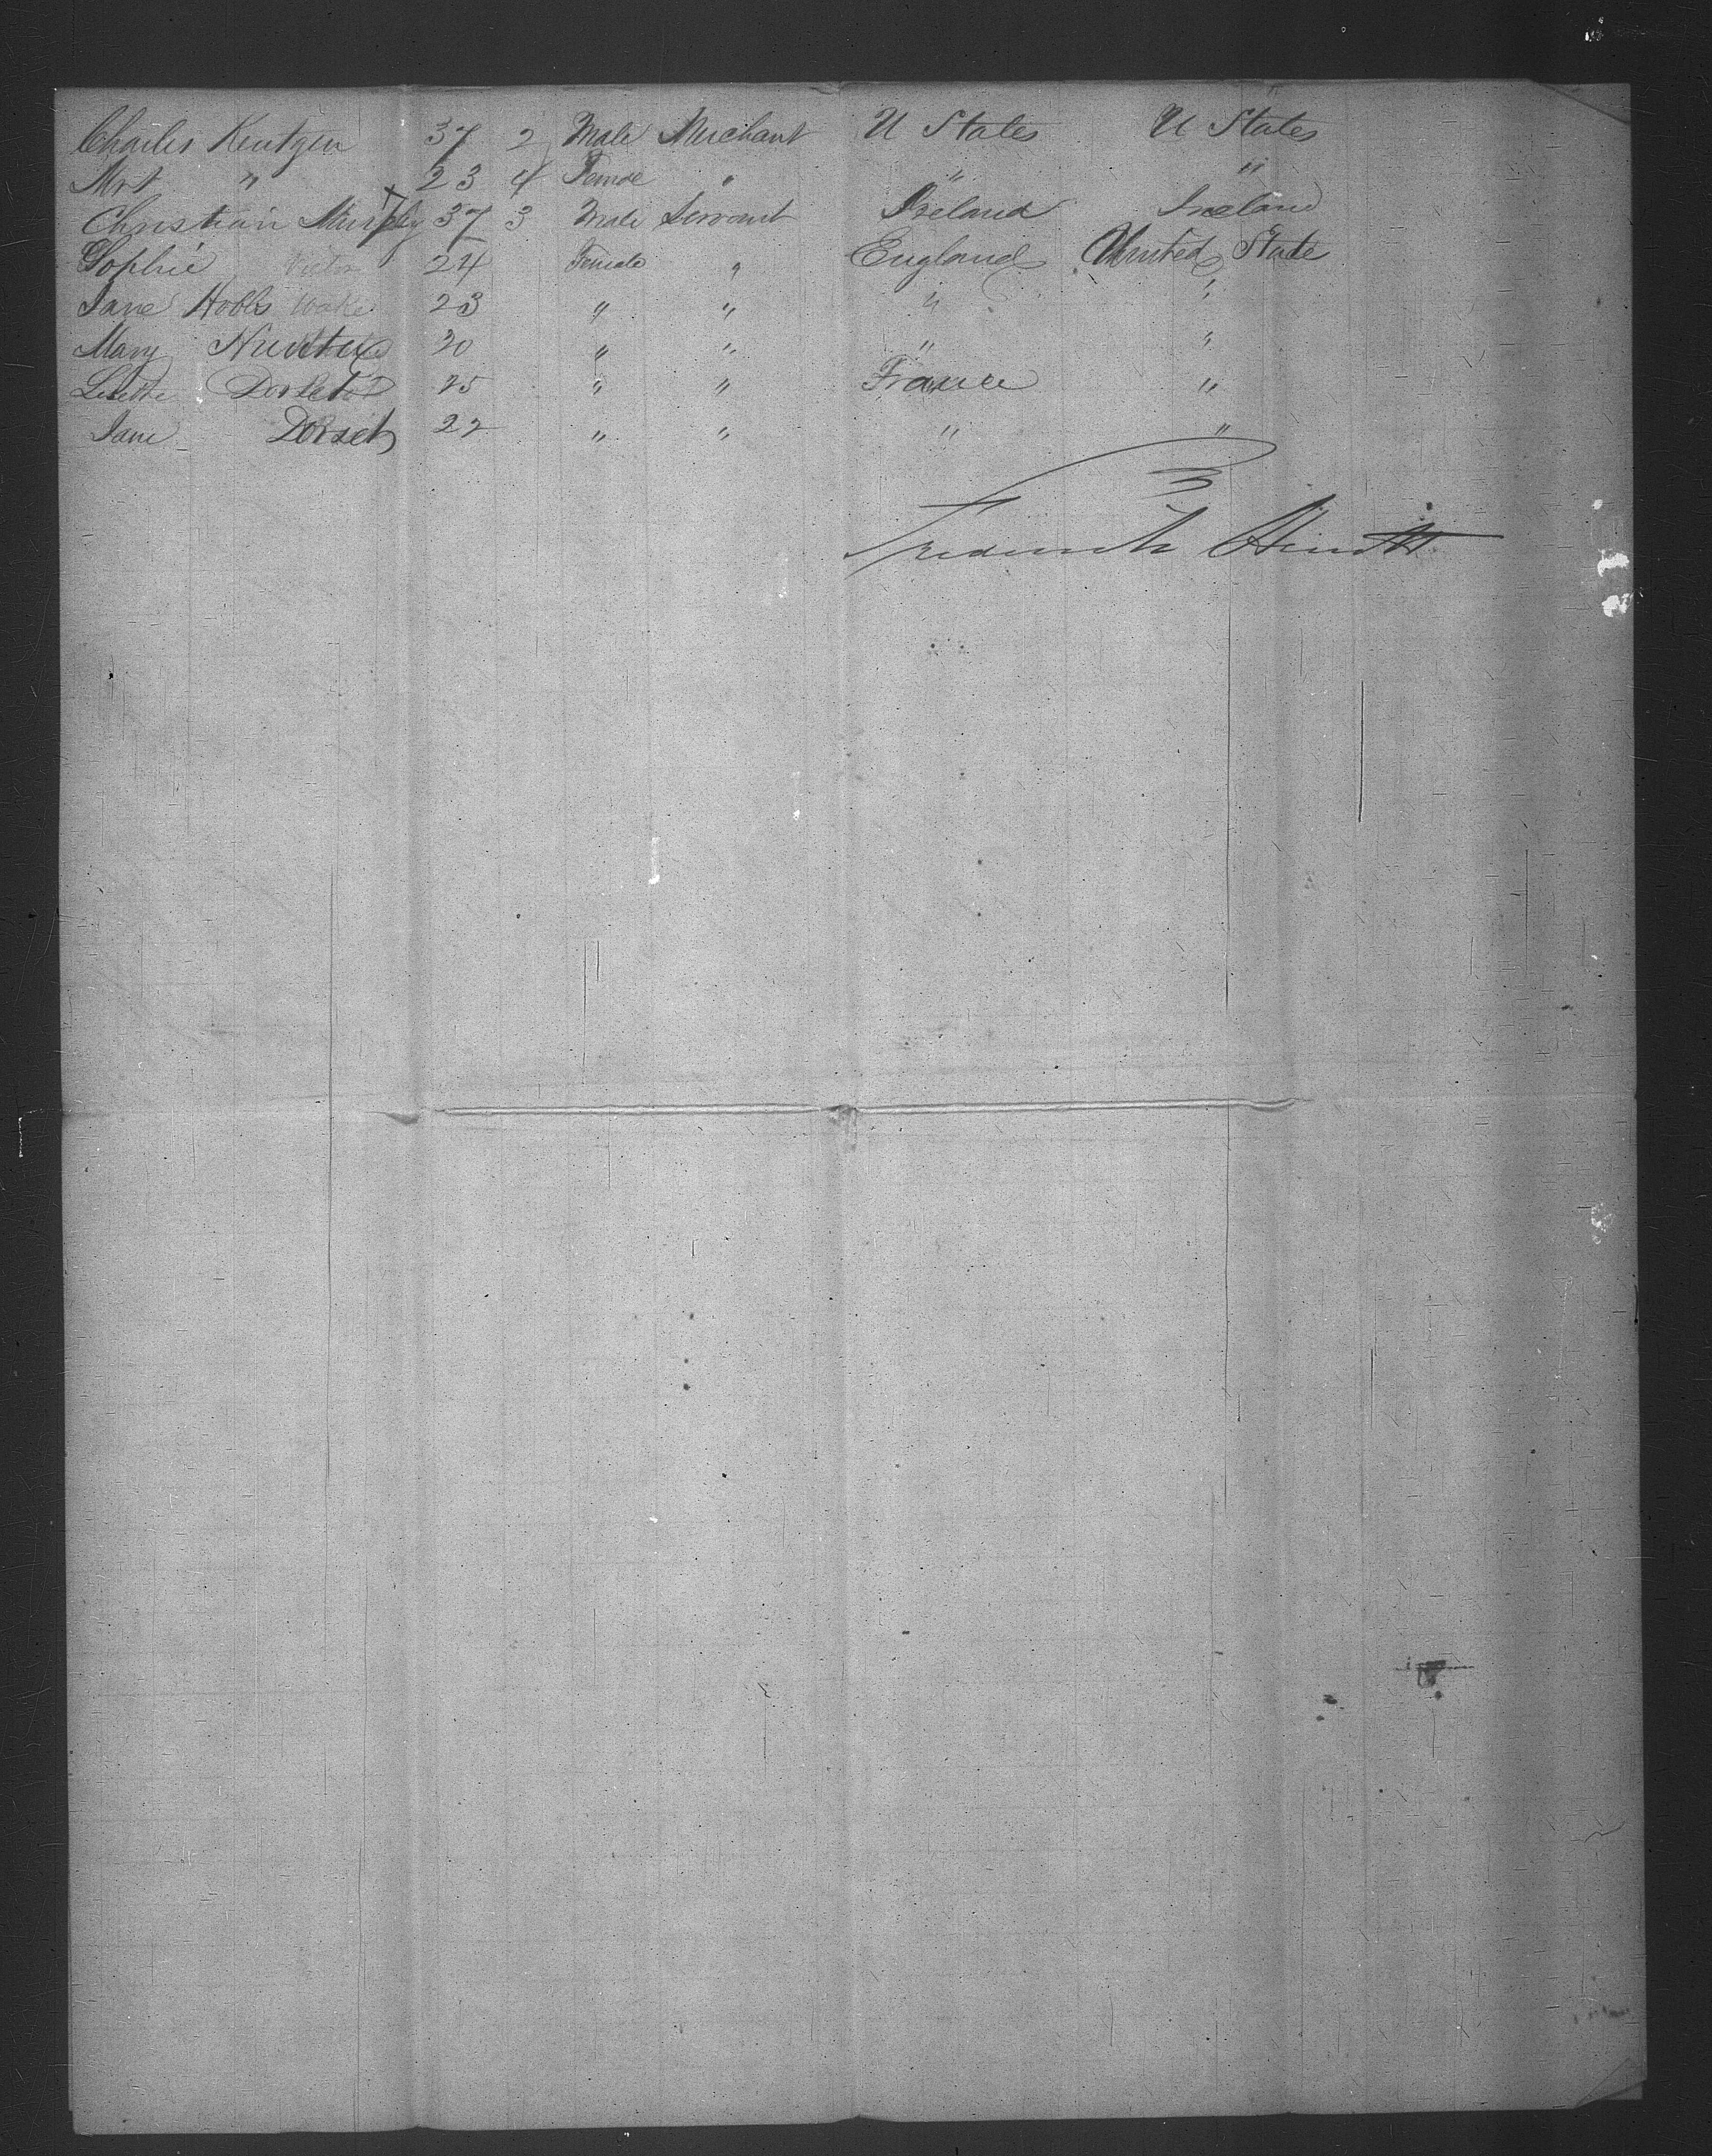 Charles Kentgen 37 2 Male Merchant U States U States
Mrs " 23 4 Female " " "
Christian Murphy 37 3 Male Servant Ireland Ireland
Sophie Victor 24 Female " England United State
Jane Hobbs 23 " " " "
Mary 20 " " " "
25 " " France "
Jane Dorset 22 " " " "
Frederick